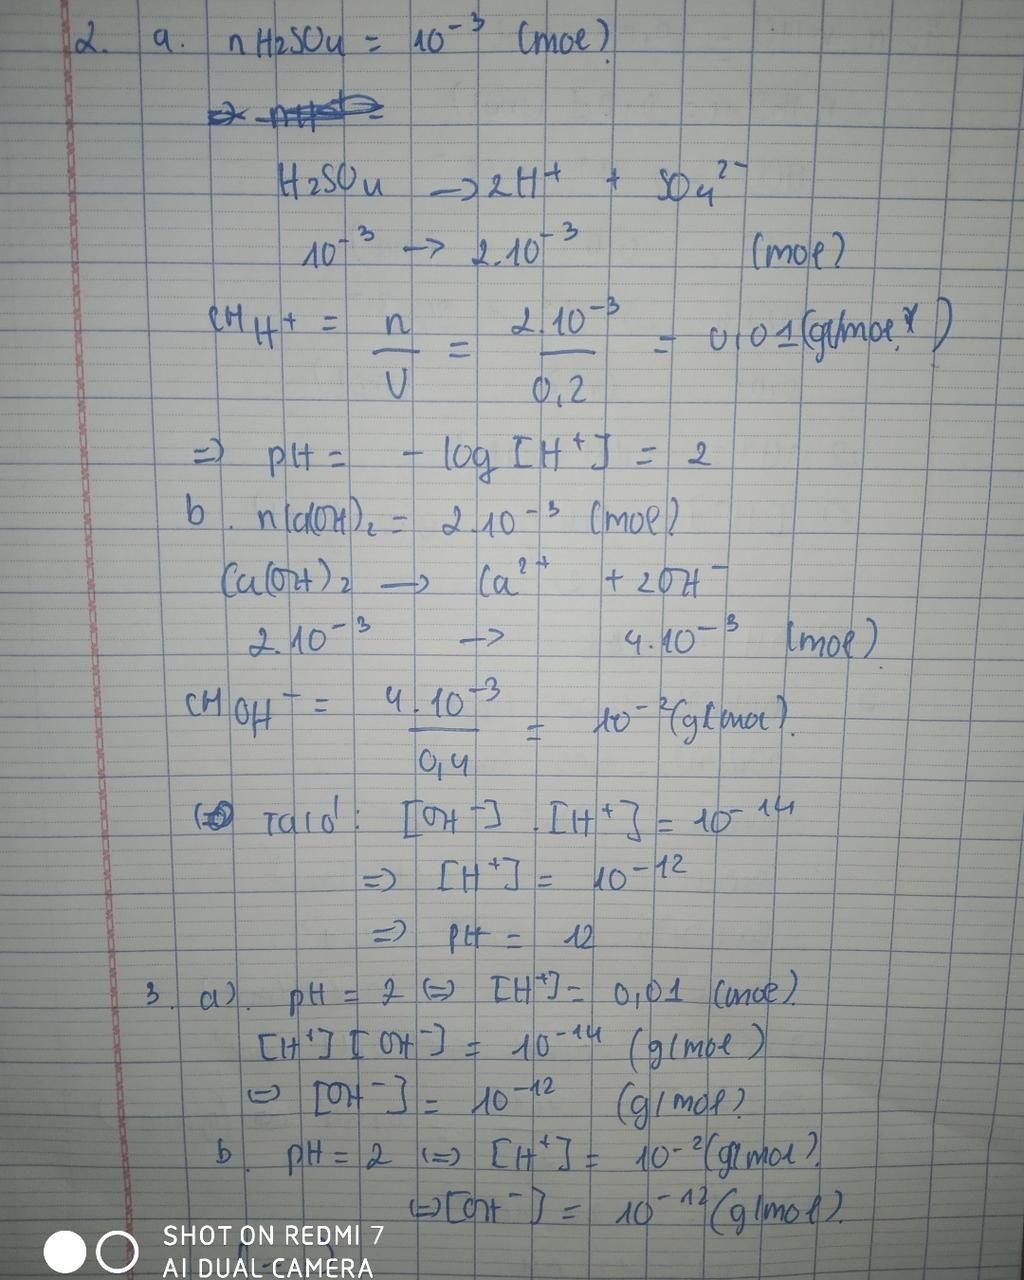 2. a. nH2SO4 = 10⁻³ (mol)
H2SO4 → 2H⁺ + SO4²⁻
10⁻³ → 2.10⁻³ (mol)
CM H⁺ = n/V = 2.10⁻³/0,2 = 0,01 (g/mol)
=> pH = - log [H⁺] = 2
b. nCa(OH)2 = 2.10⁻³ (mol)
Ca(OH)2 → Ca²⁺ + 2OH⁻
2.10⁻³ → 4.10⁻³ (mol)
CM OH⁻ = 4.10⁻³/0,4 = 10⁻² (g/mol).
Ta có: [OH⁻].[H⁺] = 10⁻¹⁴
=> [H⁺] = 10⁻¹²
=> pH = 12
3. a). pH = 2 <=> [H⁺] = 0,01 (mol)
[H⁺][OH⁻] = 10⁻¹⁴ (g/mol)
=> [OH⁻] = 10⁻¹² (g/mol)
b. pH = 2 <=> [H⁺] = 10⁻² (g/mol).
<=> [OH⁻] = 10⁻¹² (g/mol).
SHOT ON REDMI 7
AI DUAL CAMERA